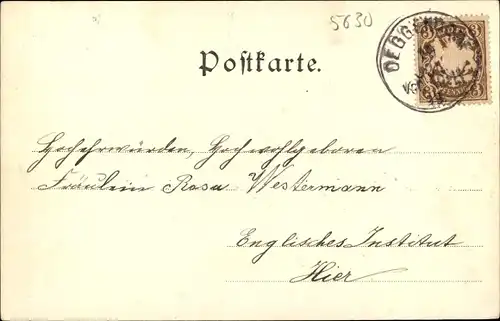 5630
Postkarte.
DEGG
3 3
Hochehrwürden, Hochwohlgeboren
Fräulein Rosa Westermann
Englisches Institut
Hier